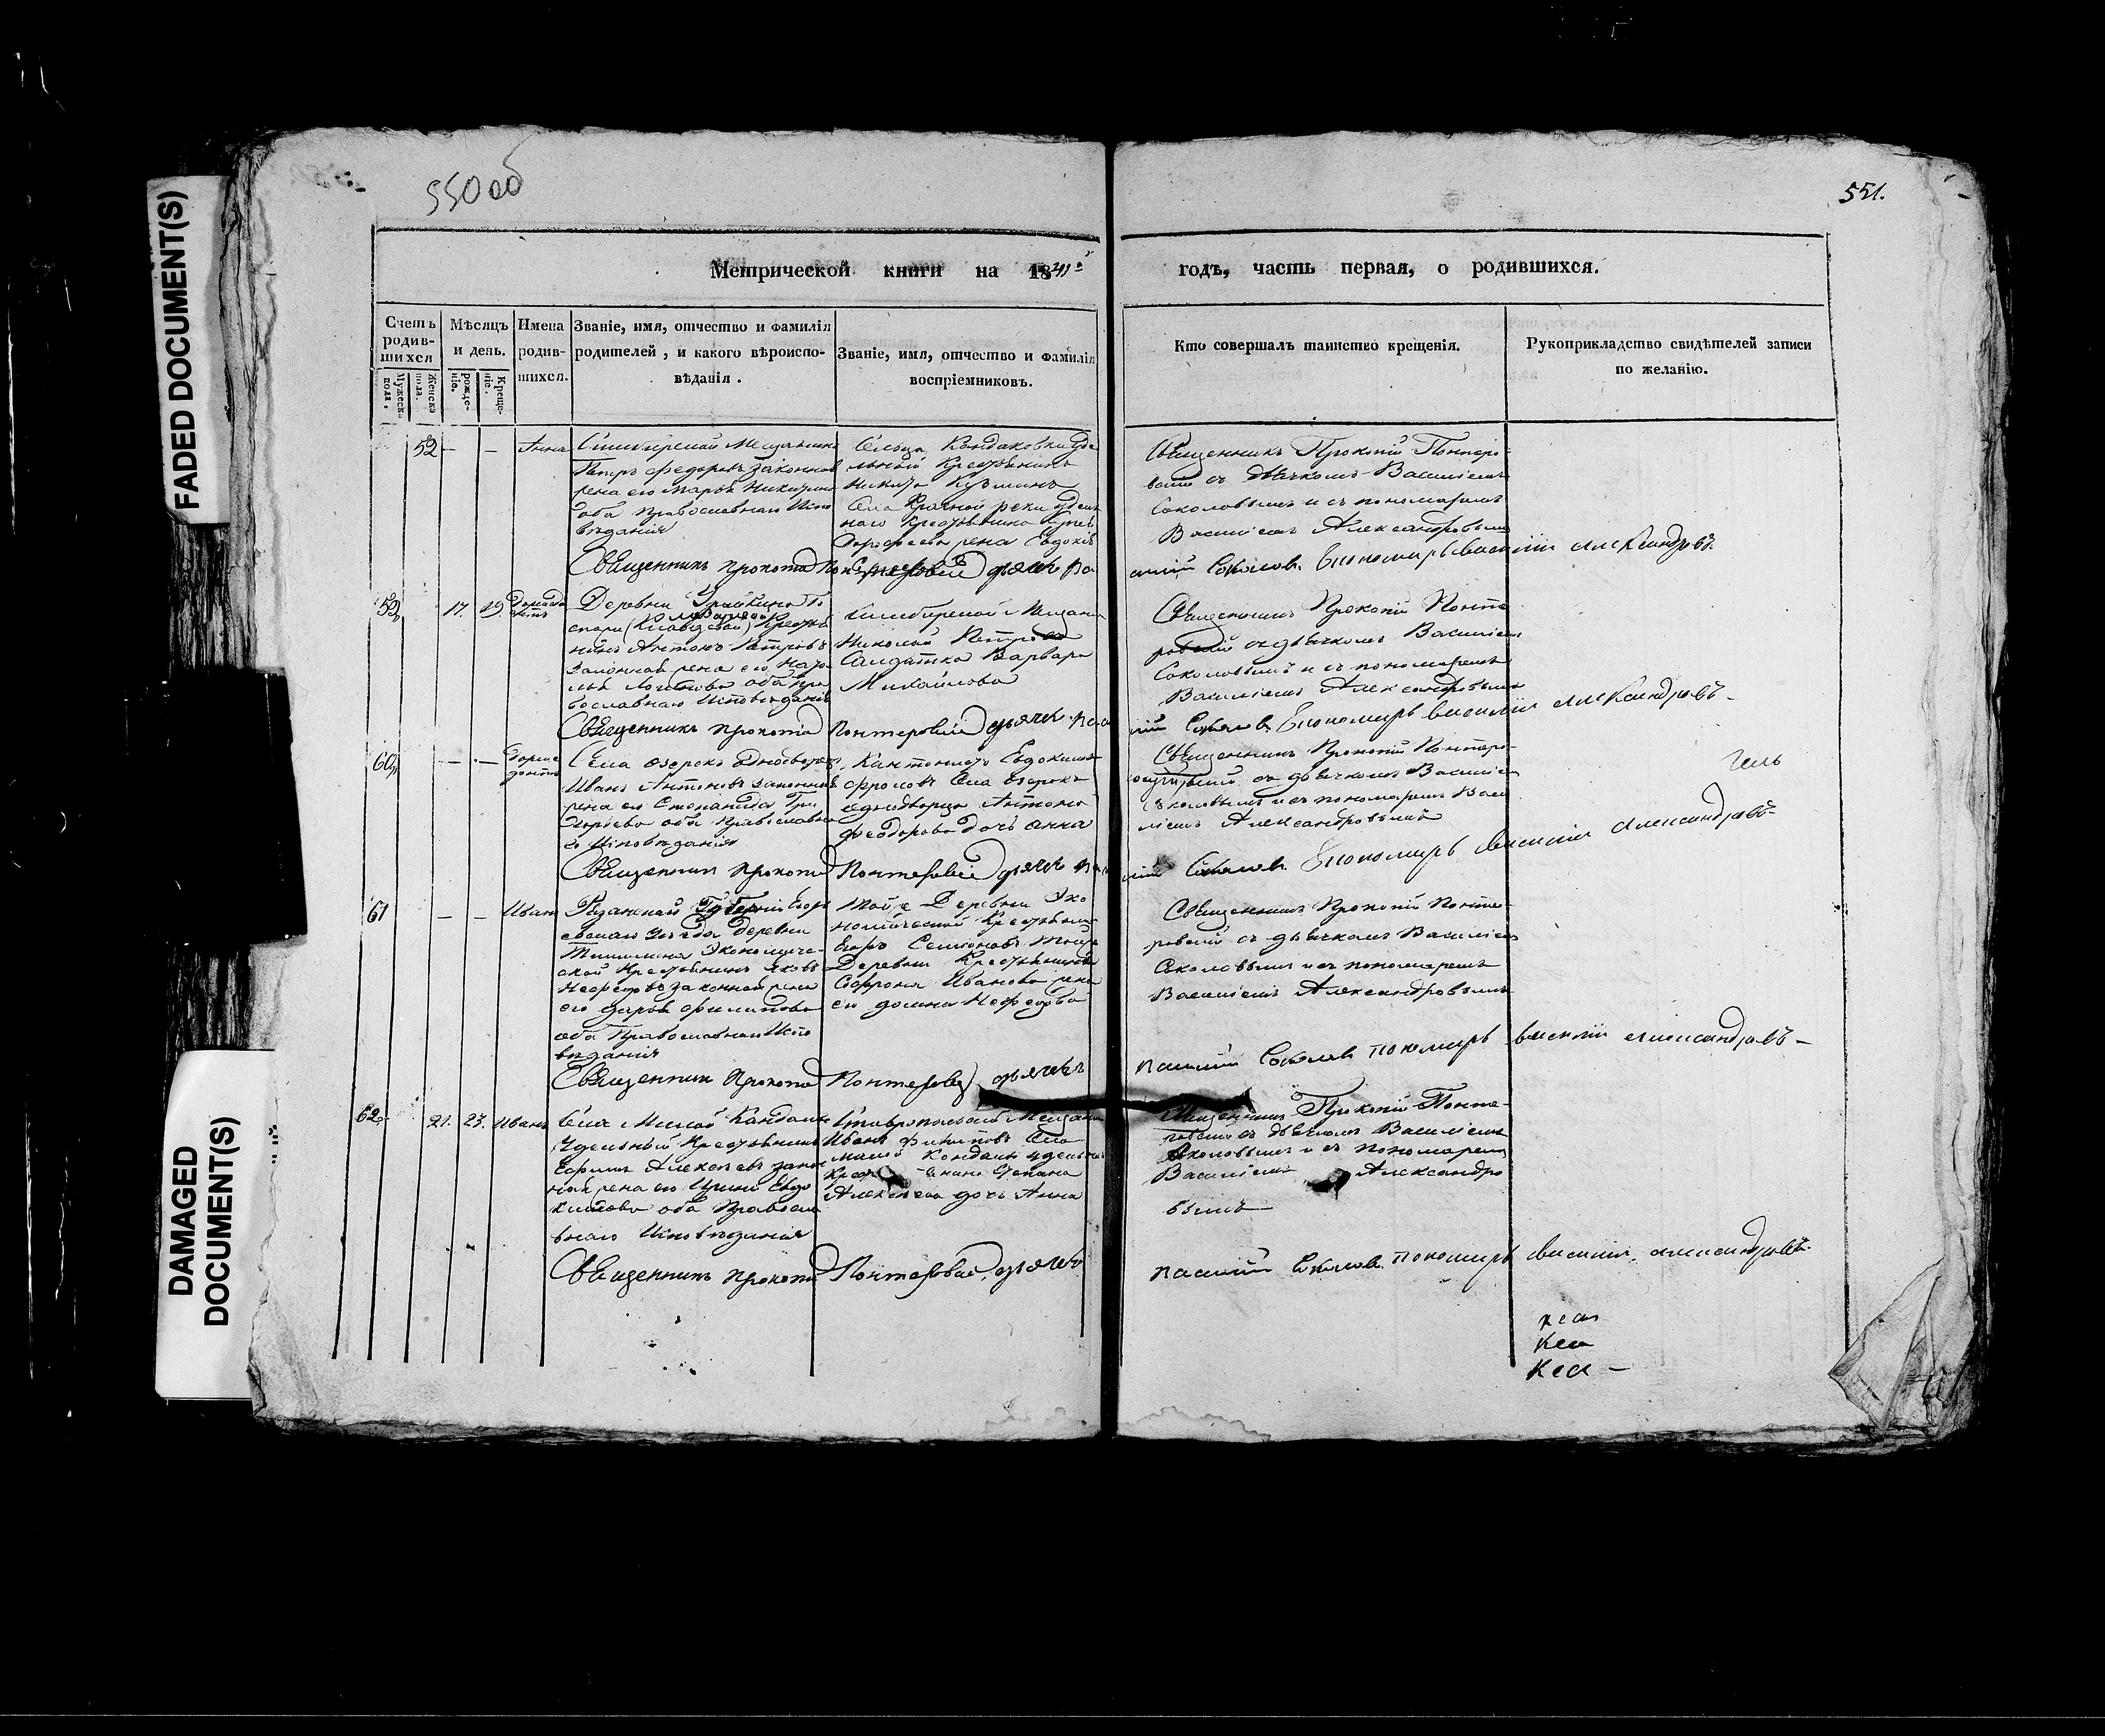 FADED DOCUMENT(S)
DAMAGED
DOCUMENT(S)
550 об
551.
Метрической книги на 1841й
годъ, часть первая, о родившихся.
Счетъ
родив-
шихся
Мужеска
пола.
Женска
пола.
Мѣсяцъ
и день.
рожде-
нія.
Креще-
нія.
Имена
родив-
шихся.
Званіе, имя, отчество и фамилія
родителей, и какого вѣроиспо-
вѣданія.
Званіе, имя, отчество и фамилія
воспріемниковъ.
Кто совершалъ таинство крещенія.
Рукоприкладство свидѣтелей записи
по желанію.
52 — — Анна
Симбирской Мещанинъ
Петръ Федоровъ законная
жена его Марья Никитина
оба Православнаго Испо
вѣданія
Сельца Кандаковки уде
льный Крестьянинъ
Никита Кузминъ
Села Красной реки удель
наго Крестьянина
жена Евдокія
Священникъ Прокопій Понтеро
вский съ дьячкомъ Василіемъ
Соколовымъ и съ пономаремъ
Василіемъ Александровымъ
Священникъ Прокопій Понтеровскій дьячекъ Ва
силий Соколов. Пономарь василій александровъ.
59 17. 19.
Деревни
Крестья
нинъ Антонъ Петровъ
законная жена его Ната
лья Логинова оба Пра
вославнаго Исповѣданія
Симбирской Мещани
Николай Петровъ
Салдатка Варвара
Михайлова
Священникъ Прокопій Понте
ровский съ дьячкомъ Василіемъ
Соколовымъ и съ пономаремъ
Василіемъ Александровымъ
Священникъ Прокопій Понтеровскій дьячек Васи
лій Соколов. Пономарь василій александровъ
60 — —
Села озерокъ однодворецъ
Иванъ Антоновъ законная
жена его Степанида Гри
горьева оба Православна
го Исповѣданія
Кантонистъ Евдокимъ
Фроловъ Села озерокъ
однодворца Антона
Феодорова дочь анна
Священникъ Прокопій Понтеро
вский съ дьячкомъ Василіемъ
Соколовымъ и съ пономаремъ Васи
ліемъ Александровымъ
гель
Священникъ Прокопій Понтеровскій дьячекъ Васи
лій Соколов. Пономарь василій александровъ
61 — — Иванъ
Рязанской Губерніи Егорь
евскаго уезда Деревни
Экономиче
ской Крестьянинъ Яковъ
Нефедовъ законная жена
его Дарья Филипова
оба Православнаго Испо
вѣданія
Той же Деревни Эко
номической Крестьянинъ
Егоръ Семіоновъ Той же
Деревни Крестьянина
Софрона Иванова жена
его домна Нефедова
Священникъ Прокопій Понте
ровский съ дьячкомъ Василіемъ
Соколовымъ и съ пономаремъ
Василіемъ Александровымъ
Священникъ Прокопій Понтеровскій дьячекъ
василий Соколов пономарь василій александровъ —
62 21. 23. Иванъ
Села Малой Кандалы
Удельный Крестьянинъ
Ефимъ Алексеевъ закон
ная жена его Ирина Евдо
кимова оба Правосла
внаго Исповѣданія
Ставропольской Мещани
Иванъ Филиповъ Села
малой Кандалы удельна
Крестьянина Степана
Алексеева дочь Анна
Священникъ Прокопій Понте
ровский съ дьячкомъ Василіемъ
Соколовымъ и съ пономаремъ
Василіемъ Александро
вымъ
Священникъ Прокопій Понтеровскій дьячекъ
василий Соколов. пономарь василій александровъ